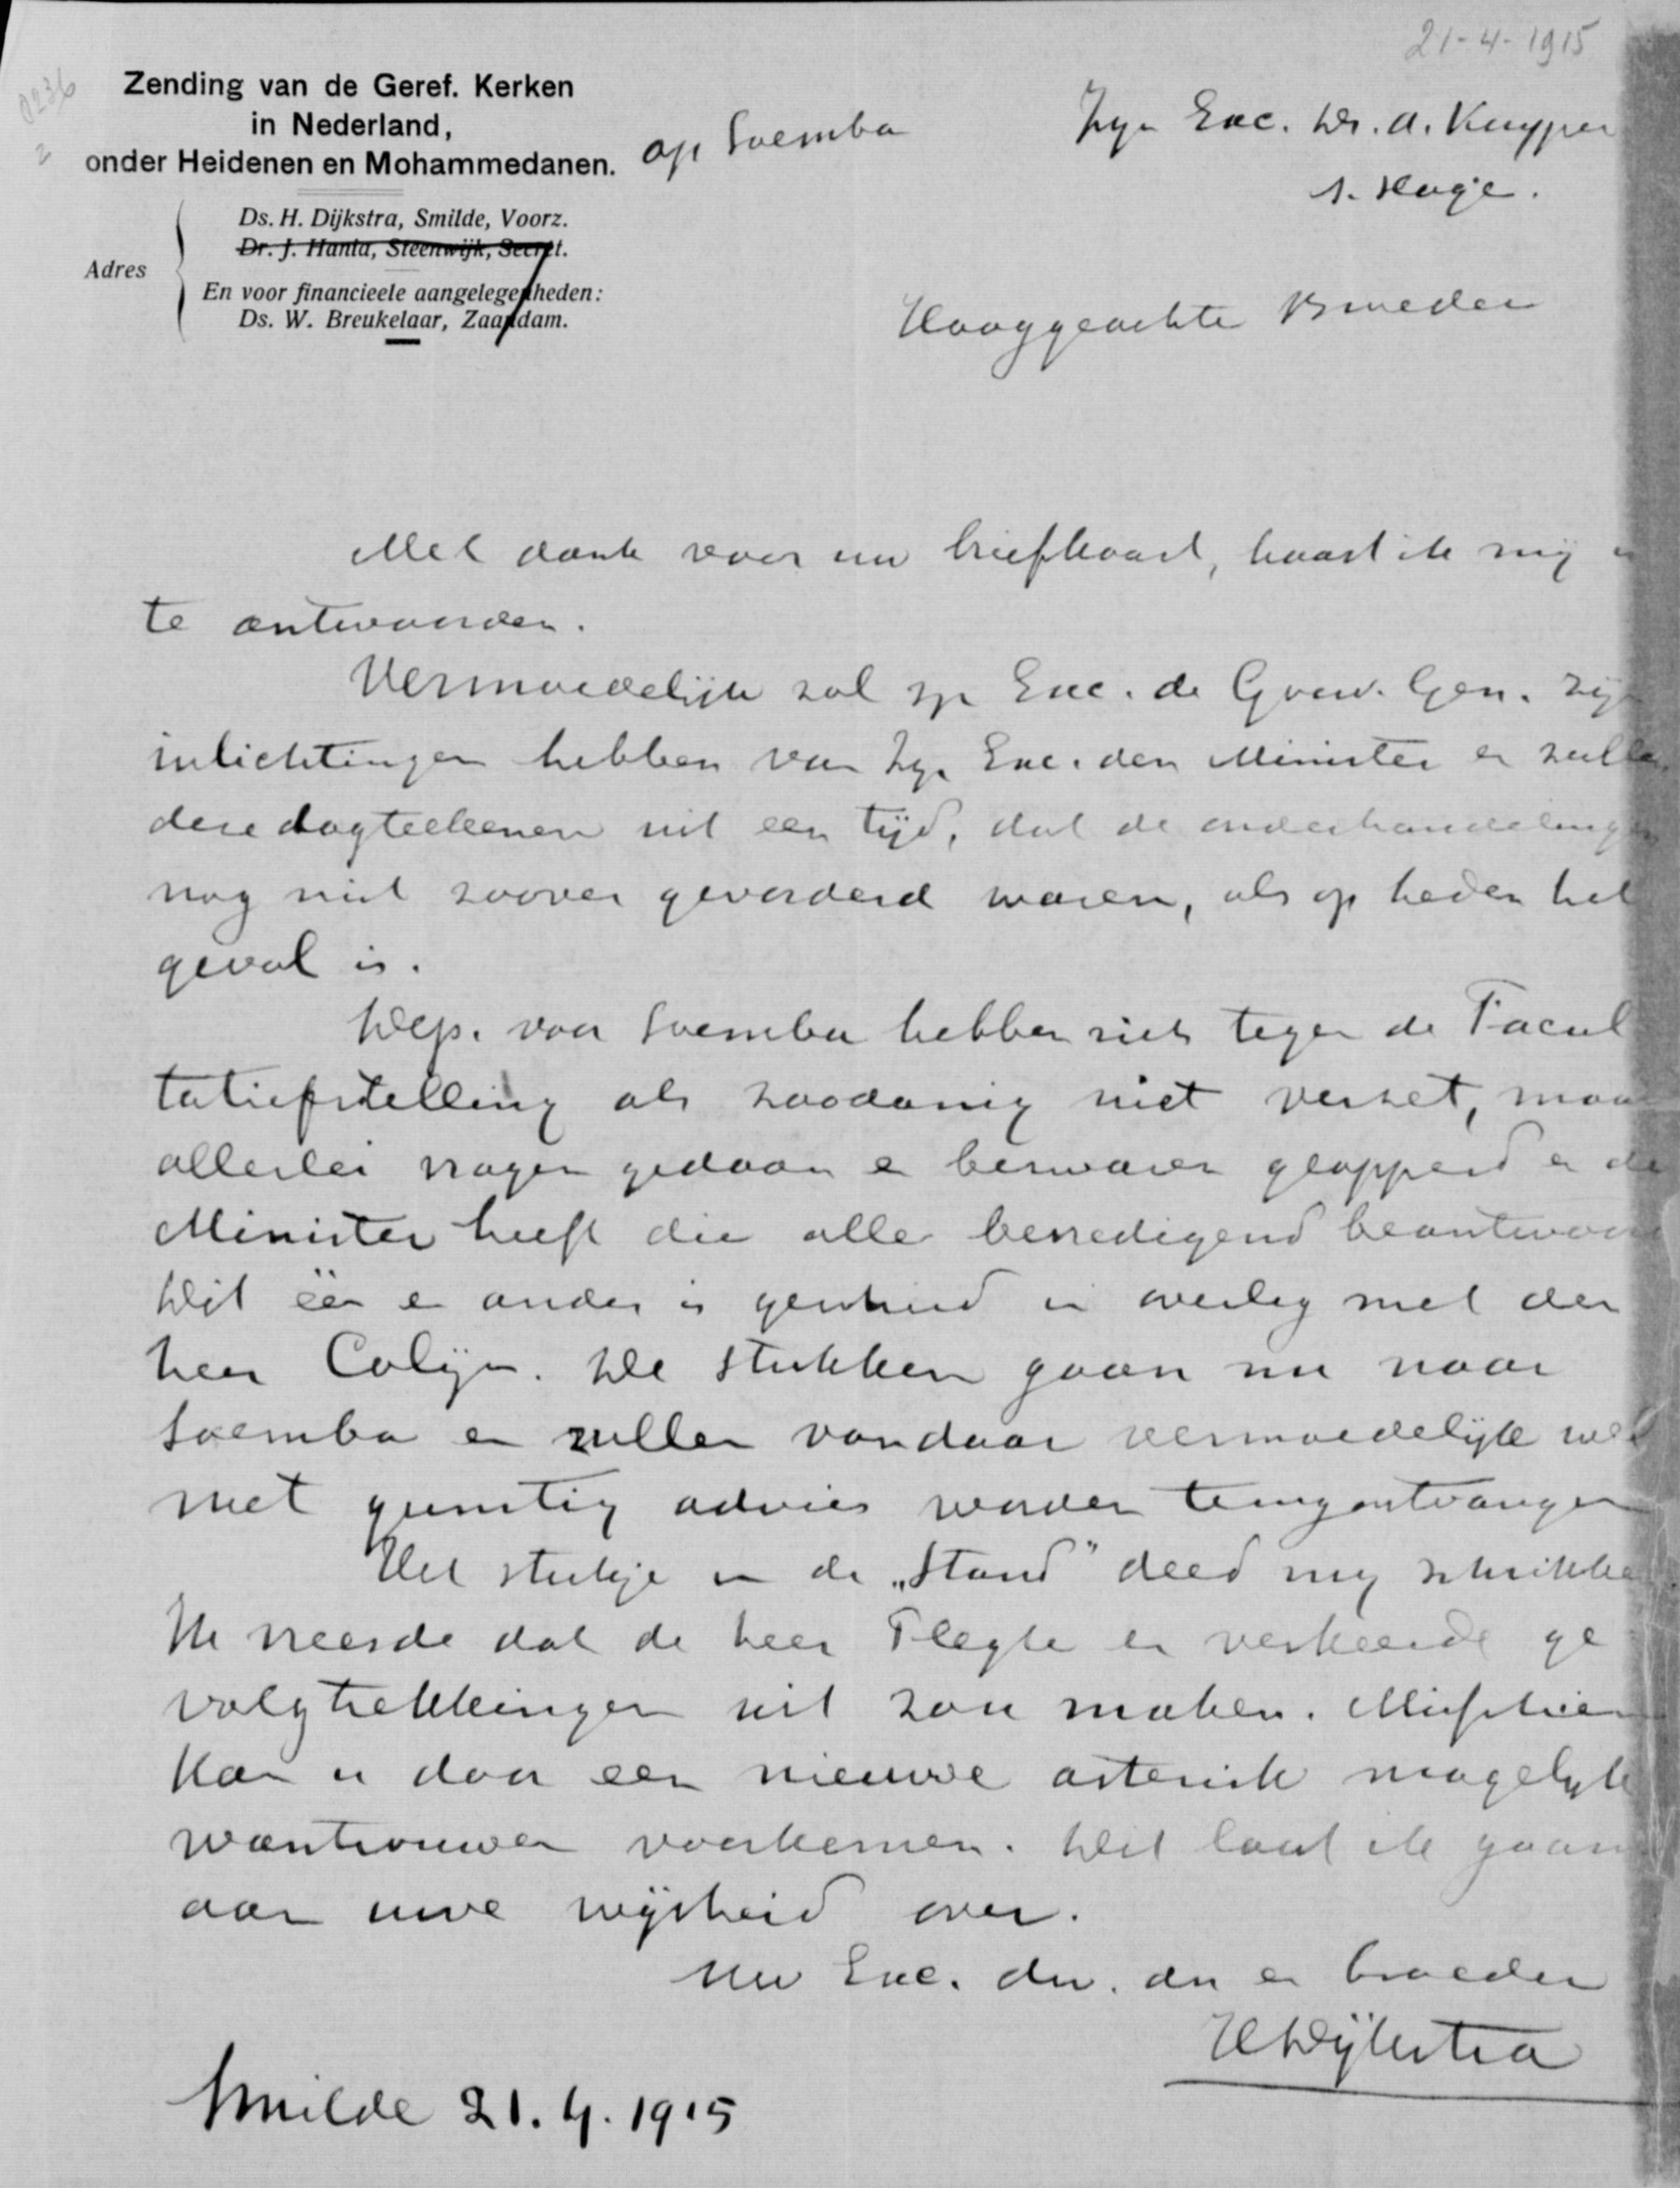 21-4-1915
0236
2
Zending van de Geref. Kerken
in Nederland,
onder Heidenen en Mohammedanen. op Soemba
Adres
Ds. H. Dijkstra, Smilde, Voorz.
Dr. J. Hania, Steenwijk, Secret.
En voor financieele aangelegenheden:
Ds. W. Breukelaar, Zaandam.
Zijn Exc. Dr. A. Kuyper
's. Hage.
Hooggeachte Broeder
Met dank voor uw briefkaart, haast ik mij u
te antwoorden.
Vermoedelijk zal zijn Exc. de Gouv. Gen. zijn
inlichtingen hebben van Zijn Exc. den Minister en zullen
deze dagteekenen uit een tijd, dat de onderhandelingen
nog niet zoover gevorderd waren, als op heden het
geval is.
Dep. voor Soemba hebben zich tegen de Facul
tatiefstelling als zoodanig niet verzet, maar
allerlei vragen gedaan en bezwaren geopperd en de
Minister heeft die alle bevredigend beantwoord
Dit één en ander is geschied in overleg met den
heer Colijn. De stukken gaan nu naar
Soemba en zullen vandaar vermoedelijk wel
met gunstig advies worden terugontvangen
Het stukje in de „Stand" deed mij schrikken
Ik vreesde dat de heer Pleyte er verkeerde ge
volgtrekkingen uit zou maken. Misschien
kan u door een nieuwe asterisk mogelijk
wantrouwen voorkomen. Dit laat ik gaarne
aan uwe wijsheid over.
Uw Exc. dw. dn en broeder
H Dijkstra
Smilde 21.4.1915